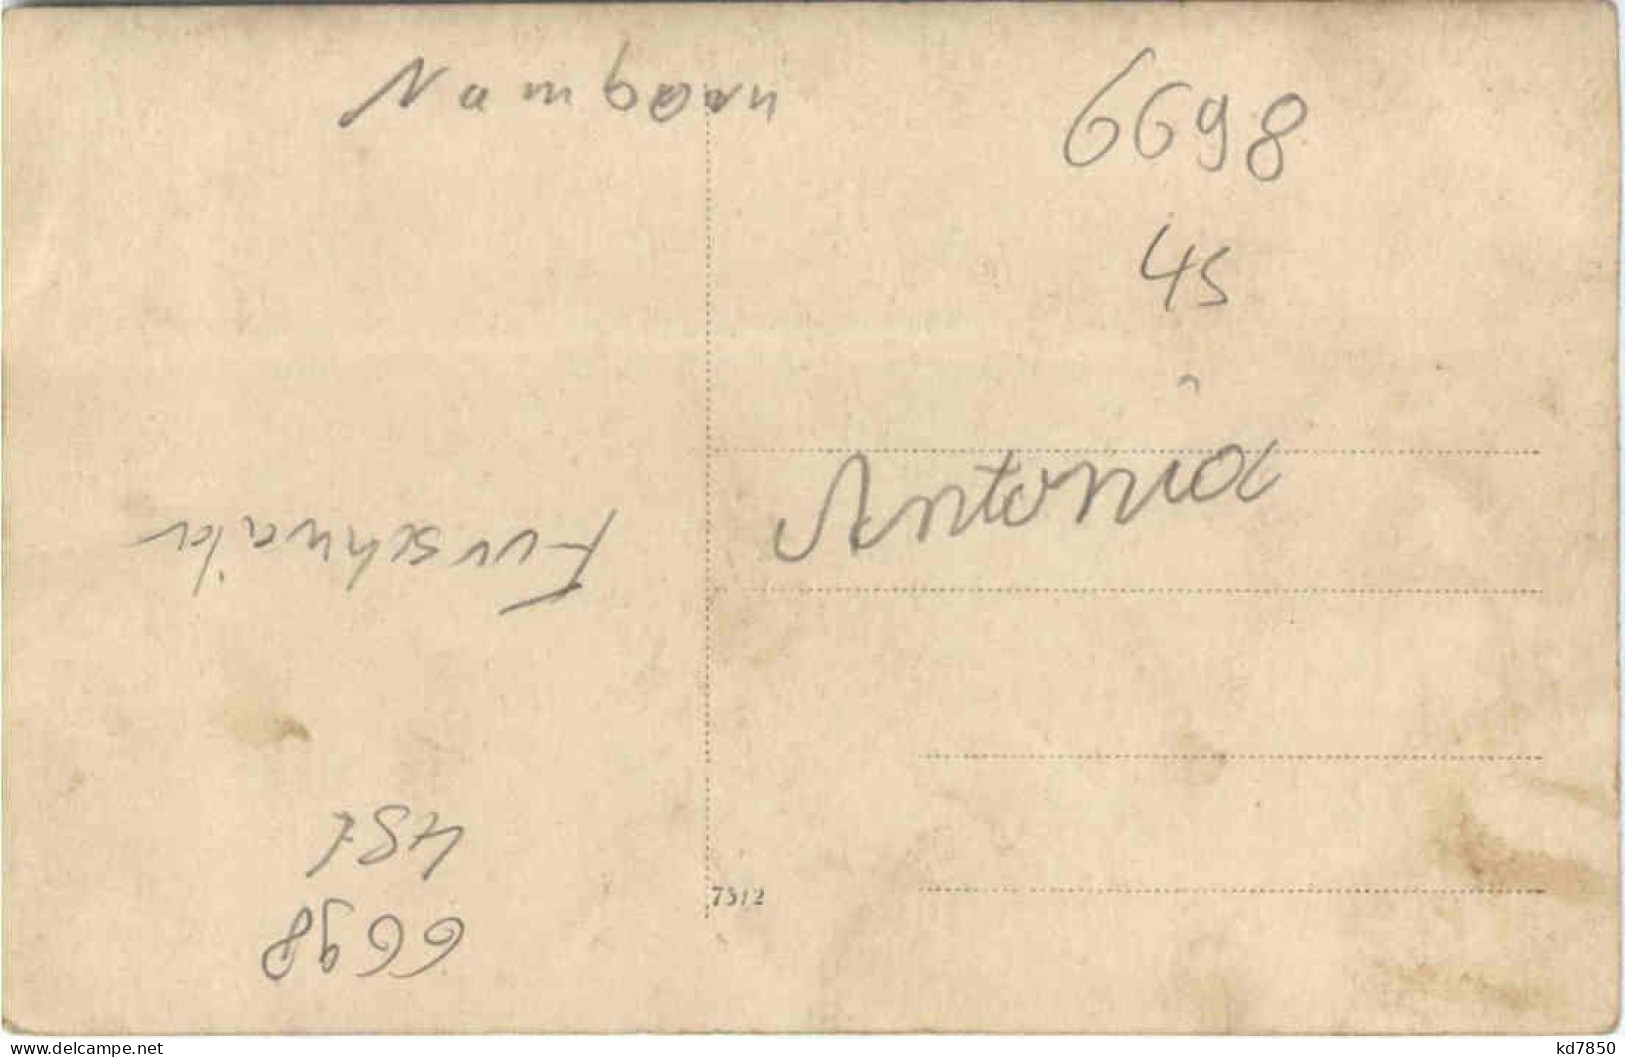 Namborn
6698
45
Antonia
Furschweiler
45,-
6698
7512
www.delcampe.net
kd7850